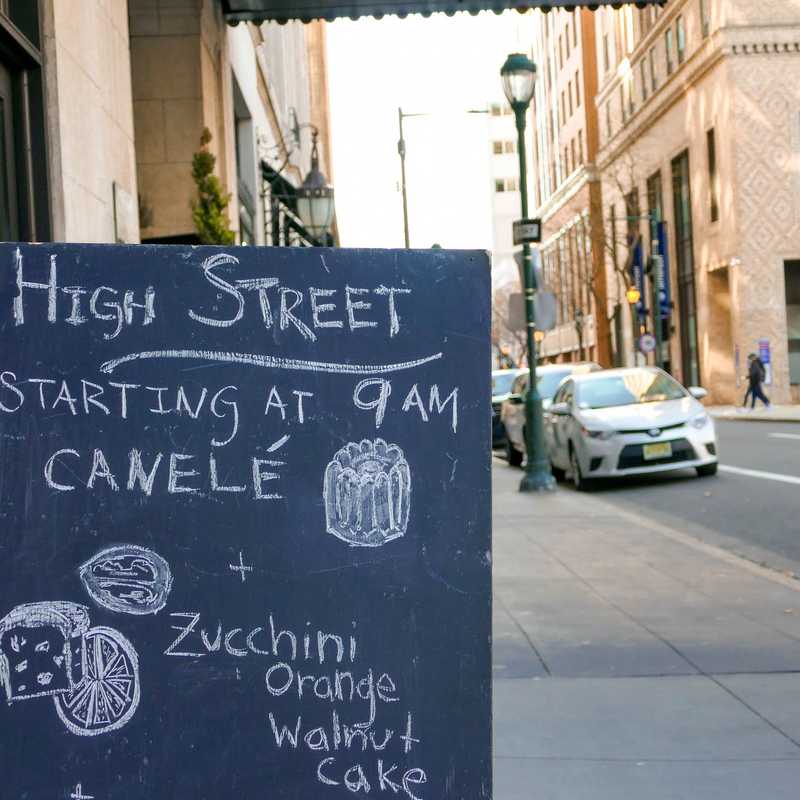 HIGH STREET
STARTING AT 9AM
CANELÉ
+
Zucchini
Orange
Walnut
cake
+